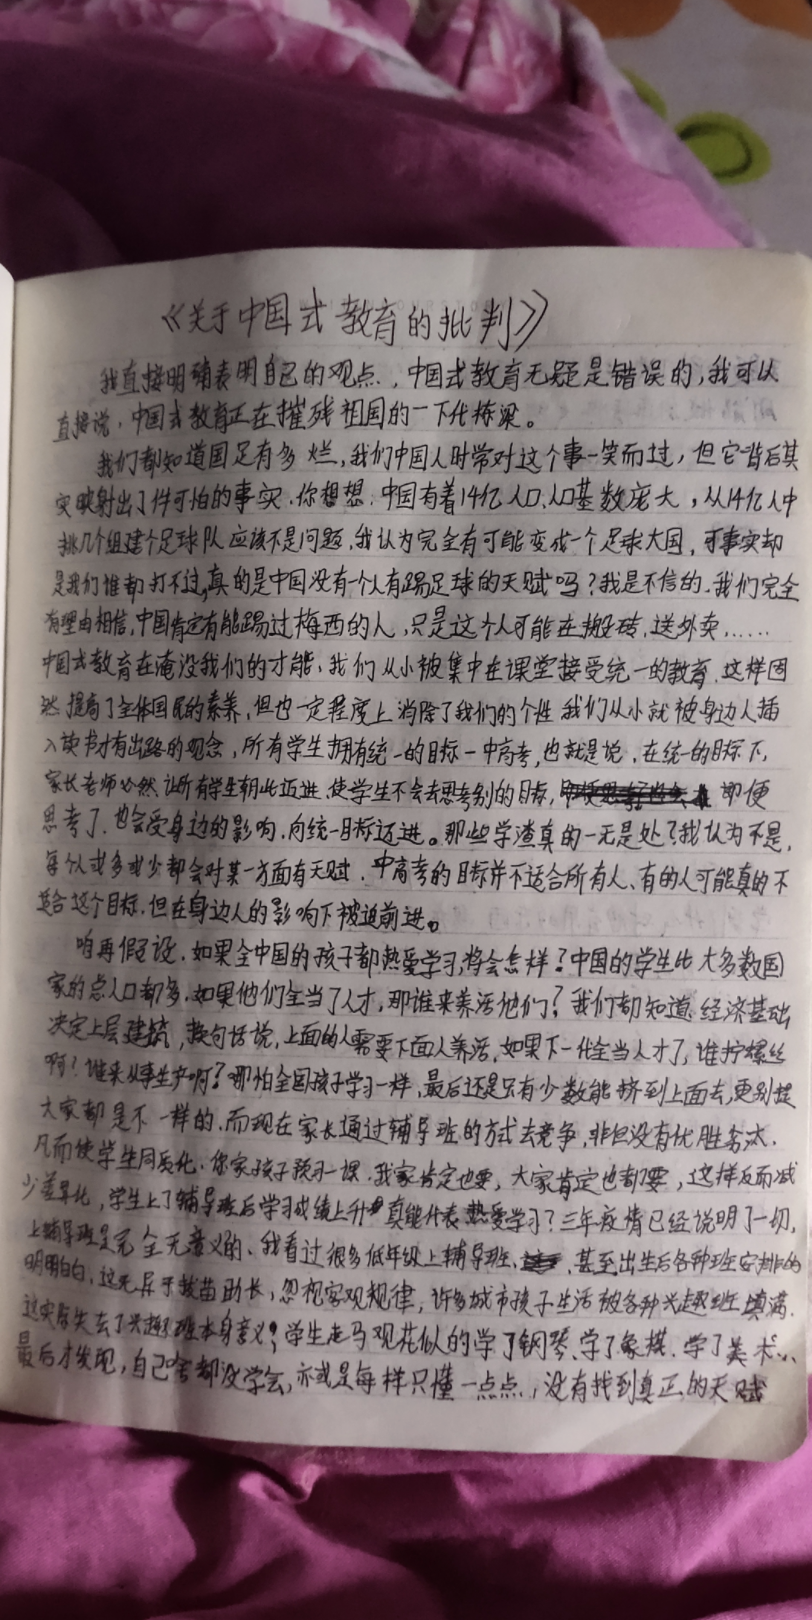 《关于中国式教育的批判》
我直接明确表明自己的观点，中国式教育无疑是错误的，我可以
直接说，中国式教育正在摧残祖国的一下代栋梁。
我们都知道国足有多烂，我们中国人时常对这个事一笑而过，但它背后其
实映射出了件可怕的事实，你想想，中国有着14亿人口，人口基数庞大，从14亿人中
挑几个组建个足球队应该不是问题，我认为完全有可能变成一个足球大国，可事实却
是我们谁都打不过，真的是中国没有一个人有踢足球的天赋吗？我是不信的，我们完全
有理由相信，中国肯定有能踢过梅西的人，只是这个人可能在搬砖，送外卖……
中国式教育在淹没我们的才能，我们从小被集中在课堂接受统一的教育，这样固
然提高了全体国民的素养，但也一定程度上消除了我们的个性，我们从小就被身边人插
入读书才有出路的观念，所有学生拥有统一的目标－中高考，也就是说，在统一的目标下，
家长老师必然让所有学生朝此迈进，使学生不会去思考别的目标，即便
思考了，也会受身边的影响，向统一目标迈进。那些学渣真的一无是处？我认为不是，
每个人或多或少都会对某一方面有天赋，中高考的目标并不适合所有人、有的人可能真的不
适合这个目标，但在身边人的影响下被迫前进。
咱再假设，如果全中国的孩子都热爱学习，将会怎样？中国的学生比大多数国
家的总人口都多，如果他们全当了人才，那谁来养活他们？我们都知道，经济基础
决定上层建筑，换句话说，上面的人需要下面人养活，如果下一代全当人才了，谁拧螺丝
啊？谁来从事生产啊？哪怕全国孩子学习一样，最后还是只有少数能挤到上面去，更别提
大家都是不一样的，而现在家长通过辅导班的方式去竞争，非但没有优胜劣汰，
凡而使学生同质化，你家孩子预习一课，我家肯定也要，大家肯定也都要，这样反而减
少差异化，学生上了辅导班后学习成绩上升真能代表热爱学习？三年疫情已经说明了一切，
上辅导班是完全无意义的、我看过很多低年级上辅导班，甚至出生后各种班安排的
明明白白，这无异于拔苗助长，忽视客观规律，许多城市孩子生活被各种兴趣班填满，
这实际失去了兴趣班本身意义，学生走马观花似的学了钢琴、学了象棋，学了美术…
最后才发现，自己啥都没学会，亦或是每样只懂一点点，没有找到真正的天赋